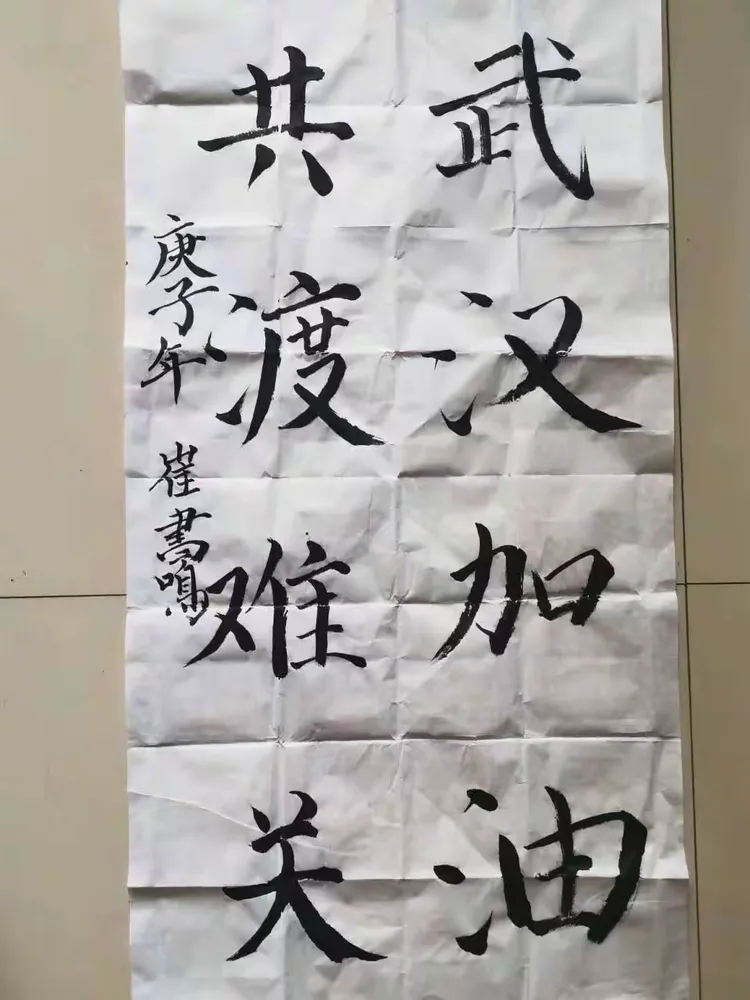 武汉加油
共渡难关
庚子年 崔書鳴